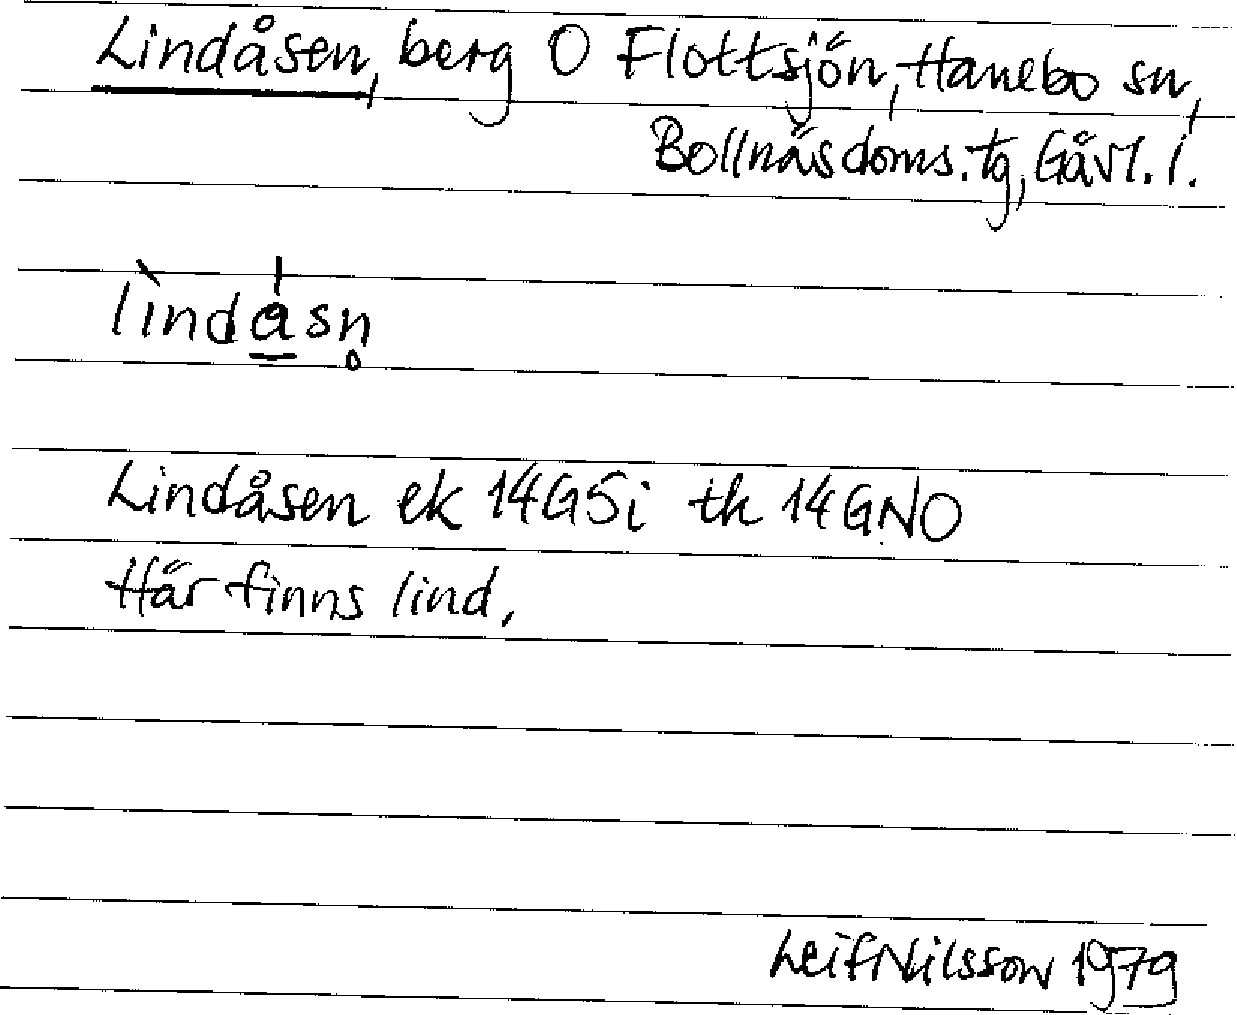 Lindåsen, berg O Flottsjön, Hanebo sn,
Bollnäs doms.tg, Gävl. l.
lìndåsn̥
Lindåsen ek 14G5i tk 14GNO
Här finns lind.
Leif Nilsson 1979